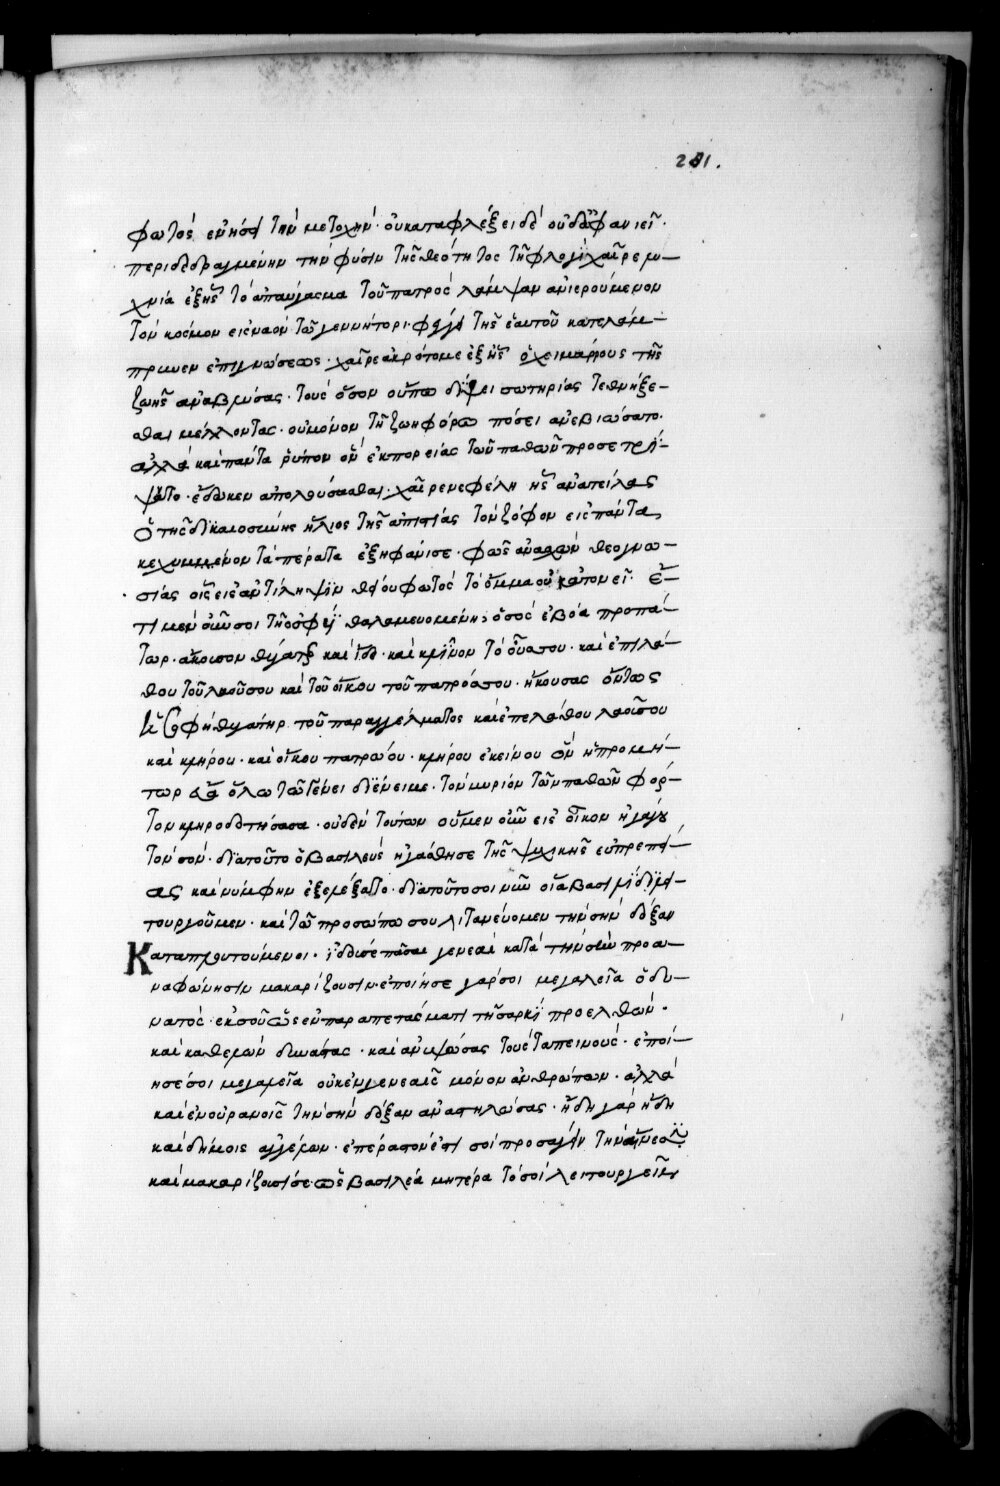 281.
φωτὸς ἐνήσει τὴν μετοχήν· οὐ καταφλέξει δὲ οὐδὲ ἀφανιεῖ·
περιδεδραγμένην τὴν φύσιν τῆς θεότητος τῇ φλογί· χαῖρε λυ-
χνία ἐξ ἧς τὸ ἀπαύγασμα τοῦ πατρὸς λάμψαν ἀνιερούμενον
τὸν κόσμον εἰς ναὸν τῷ γεννήτορι· φέγγει τῆς ἑαυτοῦ κατελάμ-
πρυνεν ἐπιγνώσεως· χαῖρε ἀκρότομε ἐξ ἧς ὁ χειμάρρους τῆς
ζωῆς ἀναβλύσας· τοὺς ὅσον οὔπω δίψει σωτηρίας τεθνήξε-
θαι μέλλοντας· οὐ μόνον τῇ ζωηφόρῳ πόσει ἀνεβιώσατο·
ἀλλὰ καὶ πάντα ῥύπον ὃν ἐκ πορείας τῶν παθῶν προσετρί-
ψατο· ἔδωκεν ἀπολούσασθαι· χαῖρε νεφέλη ἧς ἀνατείλας
ὁ τῆς δικαιοσύνης ἥλιος τῆς ἀπιστίας τὸν ζόφον εἰς πάντα
κεχυμμένον τὰ πέρατα ἐξηφάνισε· φῶς ἀνασχὼν θεογνω-
σίας οἷς εἰς ἀντίληψιν θείου φωτὸς τὸ ὄμμα οὐκ ἀτονεῖ· ἔ-
τι μὲν οὖν σοι τῆς ὀσφύϊ θαλαμευομένης ὁ σὸς ἐβόα προπά-
τωρ· ἄκουσον θύγατερ καὶ ἴδε· καὶ κλῖνον τὸ οὖς σου· καὶ ἐπιλά-
θου τοῦ λαοῦ σου καὶ τοῦ οἴκου τοῦ πατρός σου· ἤκουσας ὄντως
φὴ θυγάτηρ τοῦ παραγγέλματος καὶ ἐπελάθου λαοῦ σου
καὶ κλήρου· καὶ οἴκου πατρώου· κλήρου ἐκείνου ὃν ἡ προμή-
τωρ ὅλῳ τῷ γένει διένειμε· τὸν μυρίον τῶν παθῶν φόρ-
τον κληροδοτήσασα· οὐδὲν τούτων οὔμεν οὖν εἰς οἶκον ἤγαγου
τὸν σόν· διὰ τοῦτο ὁ βασιλεὺς ἠγάσθησε τῆς ψυχικῆς εὐπρεπεί-
ας καὶ νύμφην ἐξελέξατο· διὰ τοῦτο σοι νῦν οἷα βασιλίδι λει-
τουργοῦμεν· καὶ τῷ προσώπῳ σου λιτανεύομεν τὴν σὴν δόξαν
Καταπλουτούμενοι· ἰδού σε πᾶσαι γενεαὶ κατὰ τὴν σὴν προα-
ναφώνησιν μακαρίζουσιν· ἐποίησε γάρ σοι μεγαλεῖα ὁ δυ-
νατός· ἐκ σοῦ ὡς ἐν παραπετάσματι τῇ σαρκὶ προελθών·
καὶ καθελὼν δυνάστας· καὶ ἀνυψώσας τοὺς ταπεινούς· ἐποί-
ησέ σοι μεγαλεῖα οὐκ ἐν γενεαῖς μόνον ἀνθρώπων· ἀλλὰ
καὶ ἐν οὐρανοῖς τὴν σὴν δόξαν ἀναστηλώσας· ἤδη γὰρ ἤδη
καὶ δήμοις ἀγγέλων· ἐπέραστόν ἐστι σοὶ προσάγειν τὴν αἴνεσιν
καὶ μακαρίζουσί σε ὡς βασιλέα μητέρα τό σοι λειτουργεῖν